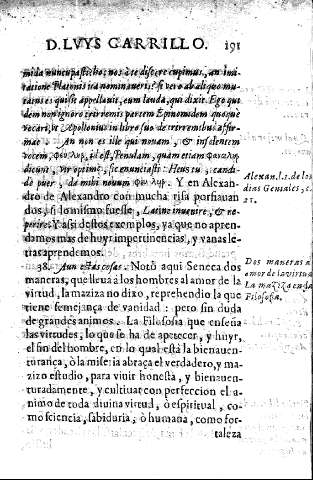 D. LVYS CARRILLO. 191
mida nuncupastic ho; nos à te discere cupimus, an imi
tatione Platonis ita nominaueris? si vero ab aliquo mu
tatus es qui sic appellauit, eum lauda, qui dixit. Ego qui
dem non ignoro triremis partem Epnomidem quoque
vocari, vt Apollonius in libro suo de trirremibus affir-
mat : An non es ille qui nouam, & insolentem
vocem, id est, Penulam, quam etiam
dicunt, vir optime, sic enunciasti: Heus tu; candi
dè puer, da mihi nouum Y en Alexan
dro de Alexandro con mucha risa porfiauan
dos, si lo mismo fuesse, Latine inuenire, & re
perire. Y assi destos exemplos, ya que no apren
damos mas de huyr impertinencias, y vanas le-
tras aprendemos.
Alexan. l. 1. de los
dias Geniales, c.
21.
38. Aun estas cosas. Notò aqui Seneca dos
maneras, que lleuà a los hombres al amor de la
virtud, la maziza no dixo, reprehendio la que
tiene semejança de vanidad : pero sin duda
de grandes animos. La Filosofia que enseña
las virtudes, lo que se ha de apetecer, y huyr,
el fin del hombre, en lo qual està la bienauen-
turança, ò la miseria abraça el verdadero, y ma
zizo estudio, para viuir honesta, y bienauen-
turadamente, y cultiuar con perfeccion el a-
nimo de toda diuina virtud, ò espiritual, co-
mo sciencia, sabiduria; ò humana, como for-
taleza
Dos maneras a
amor de la virtu
La maziza en la
Filosofia.